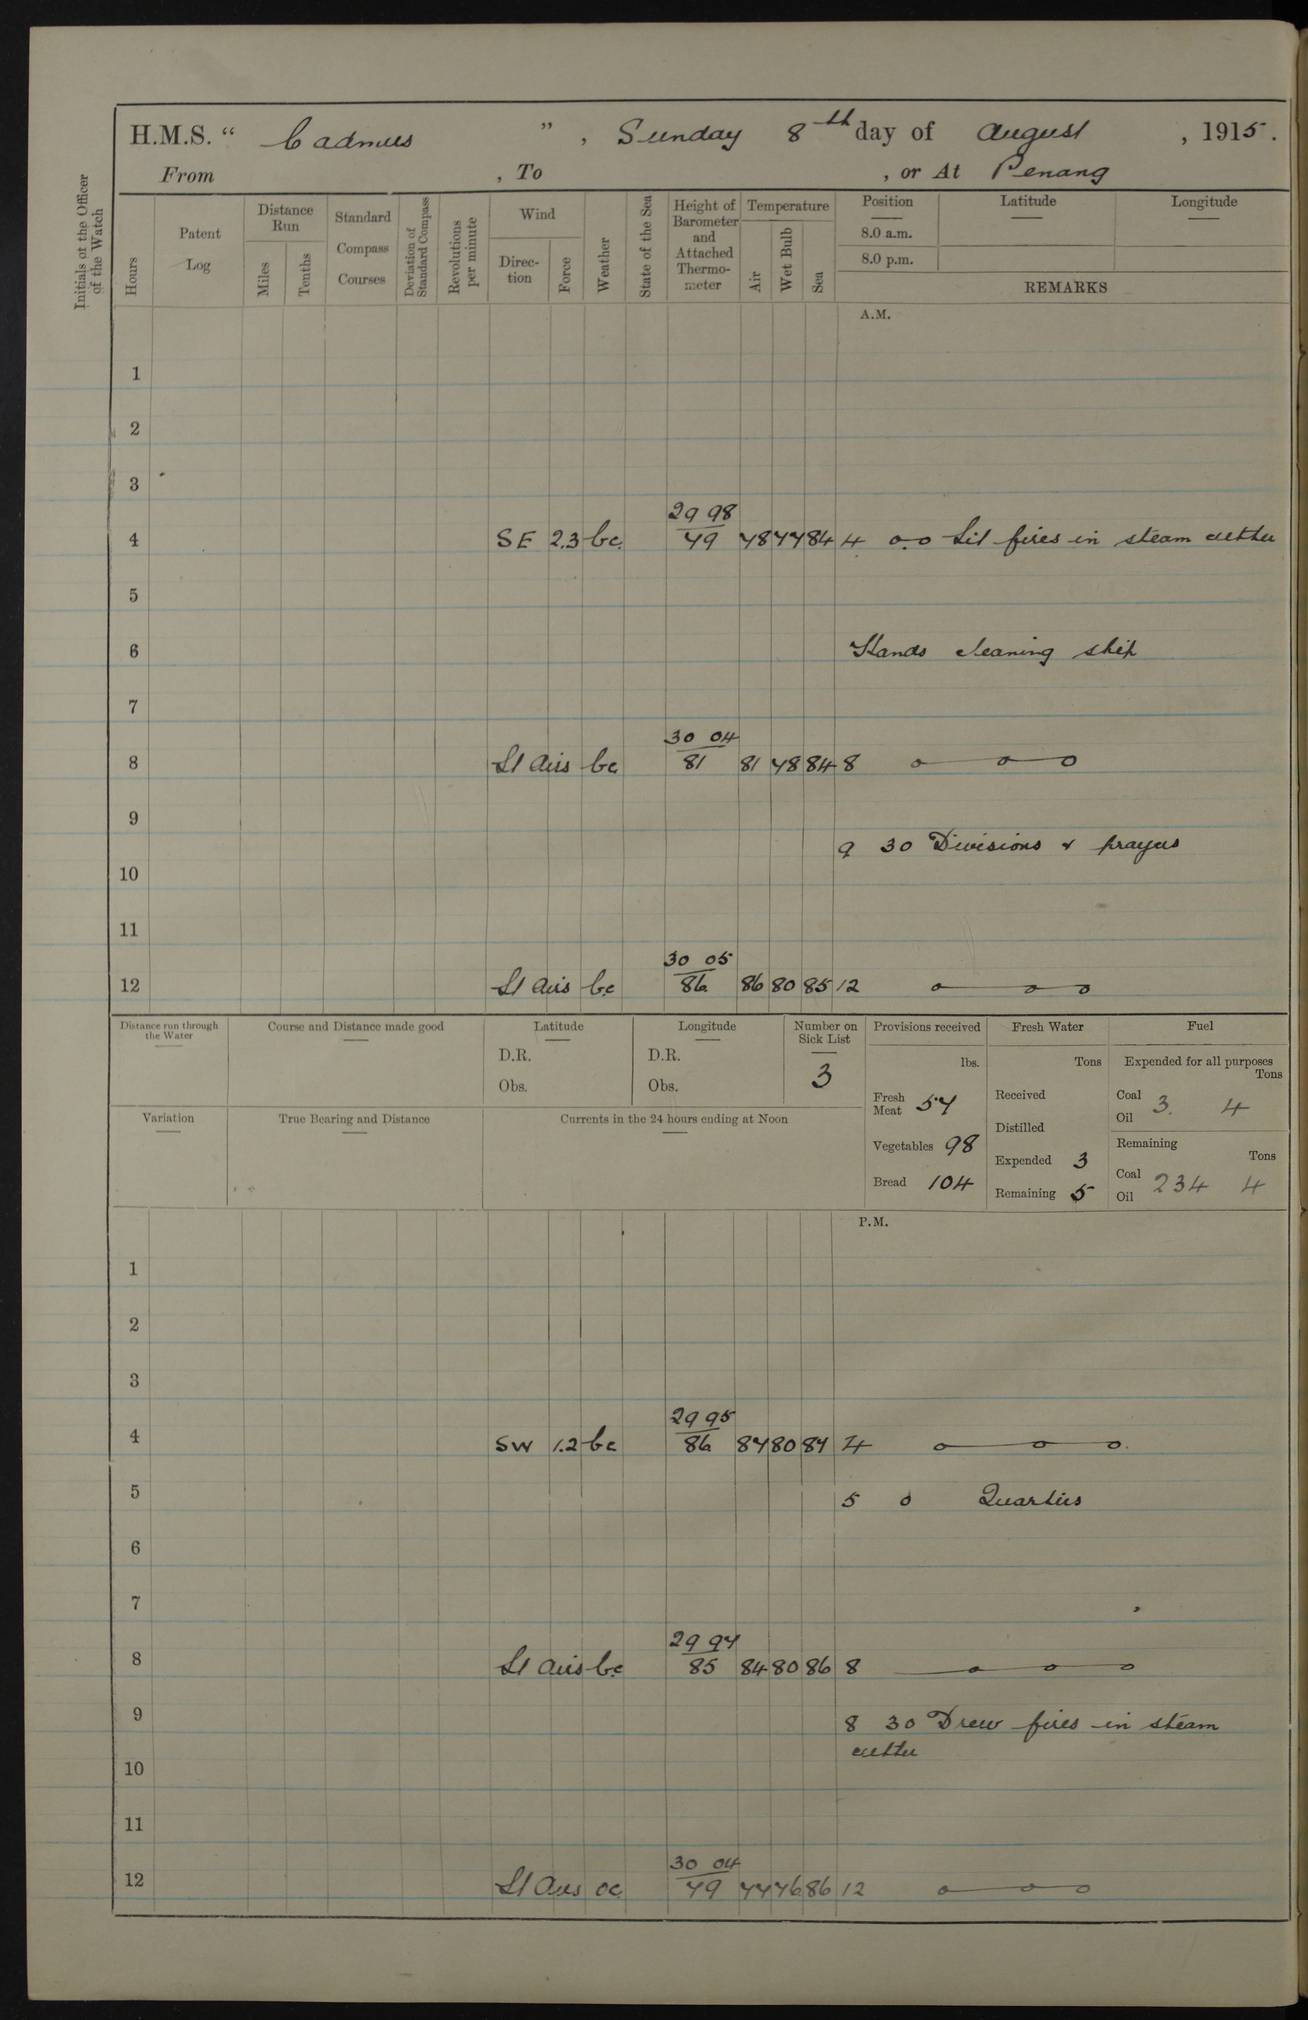 H.M.S. “ Cadmus ” , Sunday 8th day of August , 1915.
From , To , or At Penang
Initials of the Officer of the Watch
Hours
Patent Log
Distance Run
Miles
Tenths
Standard Compass Courses
Deviation of Standard Compass
Revolutions per minute
Wind
Direction
Force
Weather
State of the Sea
Height of Barometer and Attached Thermometer
Temperature
Air
Wet Bulb
Sea
Position Latitude Longitude
8.0 a.m.
8.0 p.m.
REMARKS
A.M.
1
2
3
29 98
4 SE 2.3 bc 79 78 77 84 4 o.o Lit fires in steam cutter
5
6 Hands cleaning ship
7
30 04
8 Lt airs bc 81 81 78 84 8 o o o
9
9 30 Divisions & prayers
10
11
30 05
12 Lt airs bc 86 86 80 85 12 o o o
Distance run through the Water
Course and Distance made good
Latitude
D.R.
Obs.
Longitude
D.R.
Obs.
Number on Sick List
3
Provisions received
lbs.
Fresh Meat 57
Vegetables 98
Bread 104
Fresh Water
Tons
Received
Distilled
Expended 3
Remaining 5
Fuel
Expended for all purposes
Tons
Coal 3. 4
Oil
Remaining
Tons
Coal 234 4
Oil
Variation
True Bearing and Distance
Currents in the 24 hours ending at Noon
P.M.
1
2
3
29 95
4 SW 1.2 bc 86 87 80 87 4 o o o
5 5 o Quarters
6
7
29 97
8 Lt airs bc 85 84 80 86 8 o o o
9 8 30 Drew fires in steam
cutter
10
11
30 04
12 Lt airs oc 79 77 76 86 12 o o o